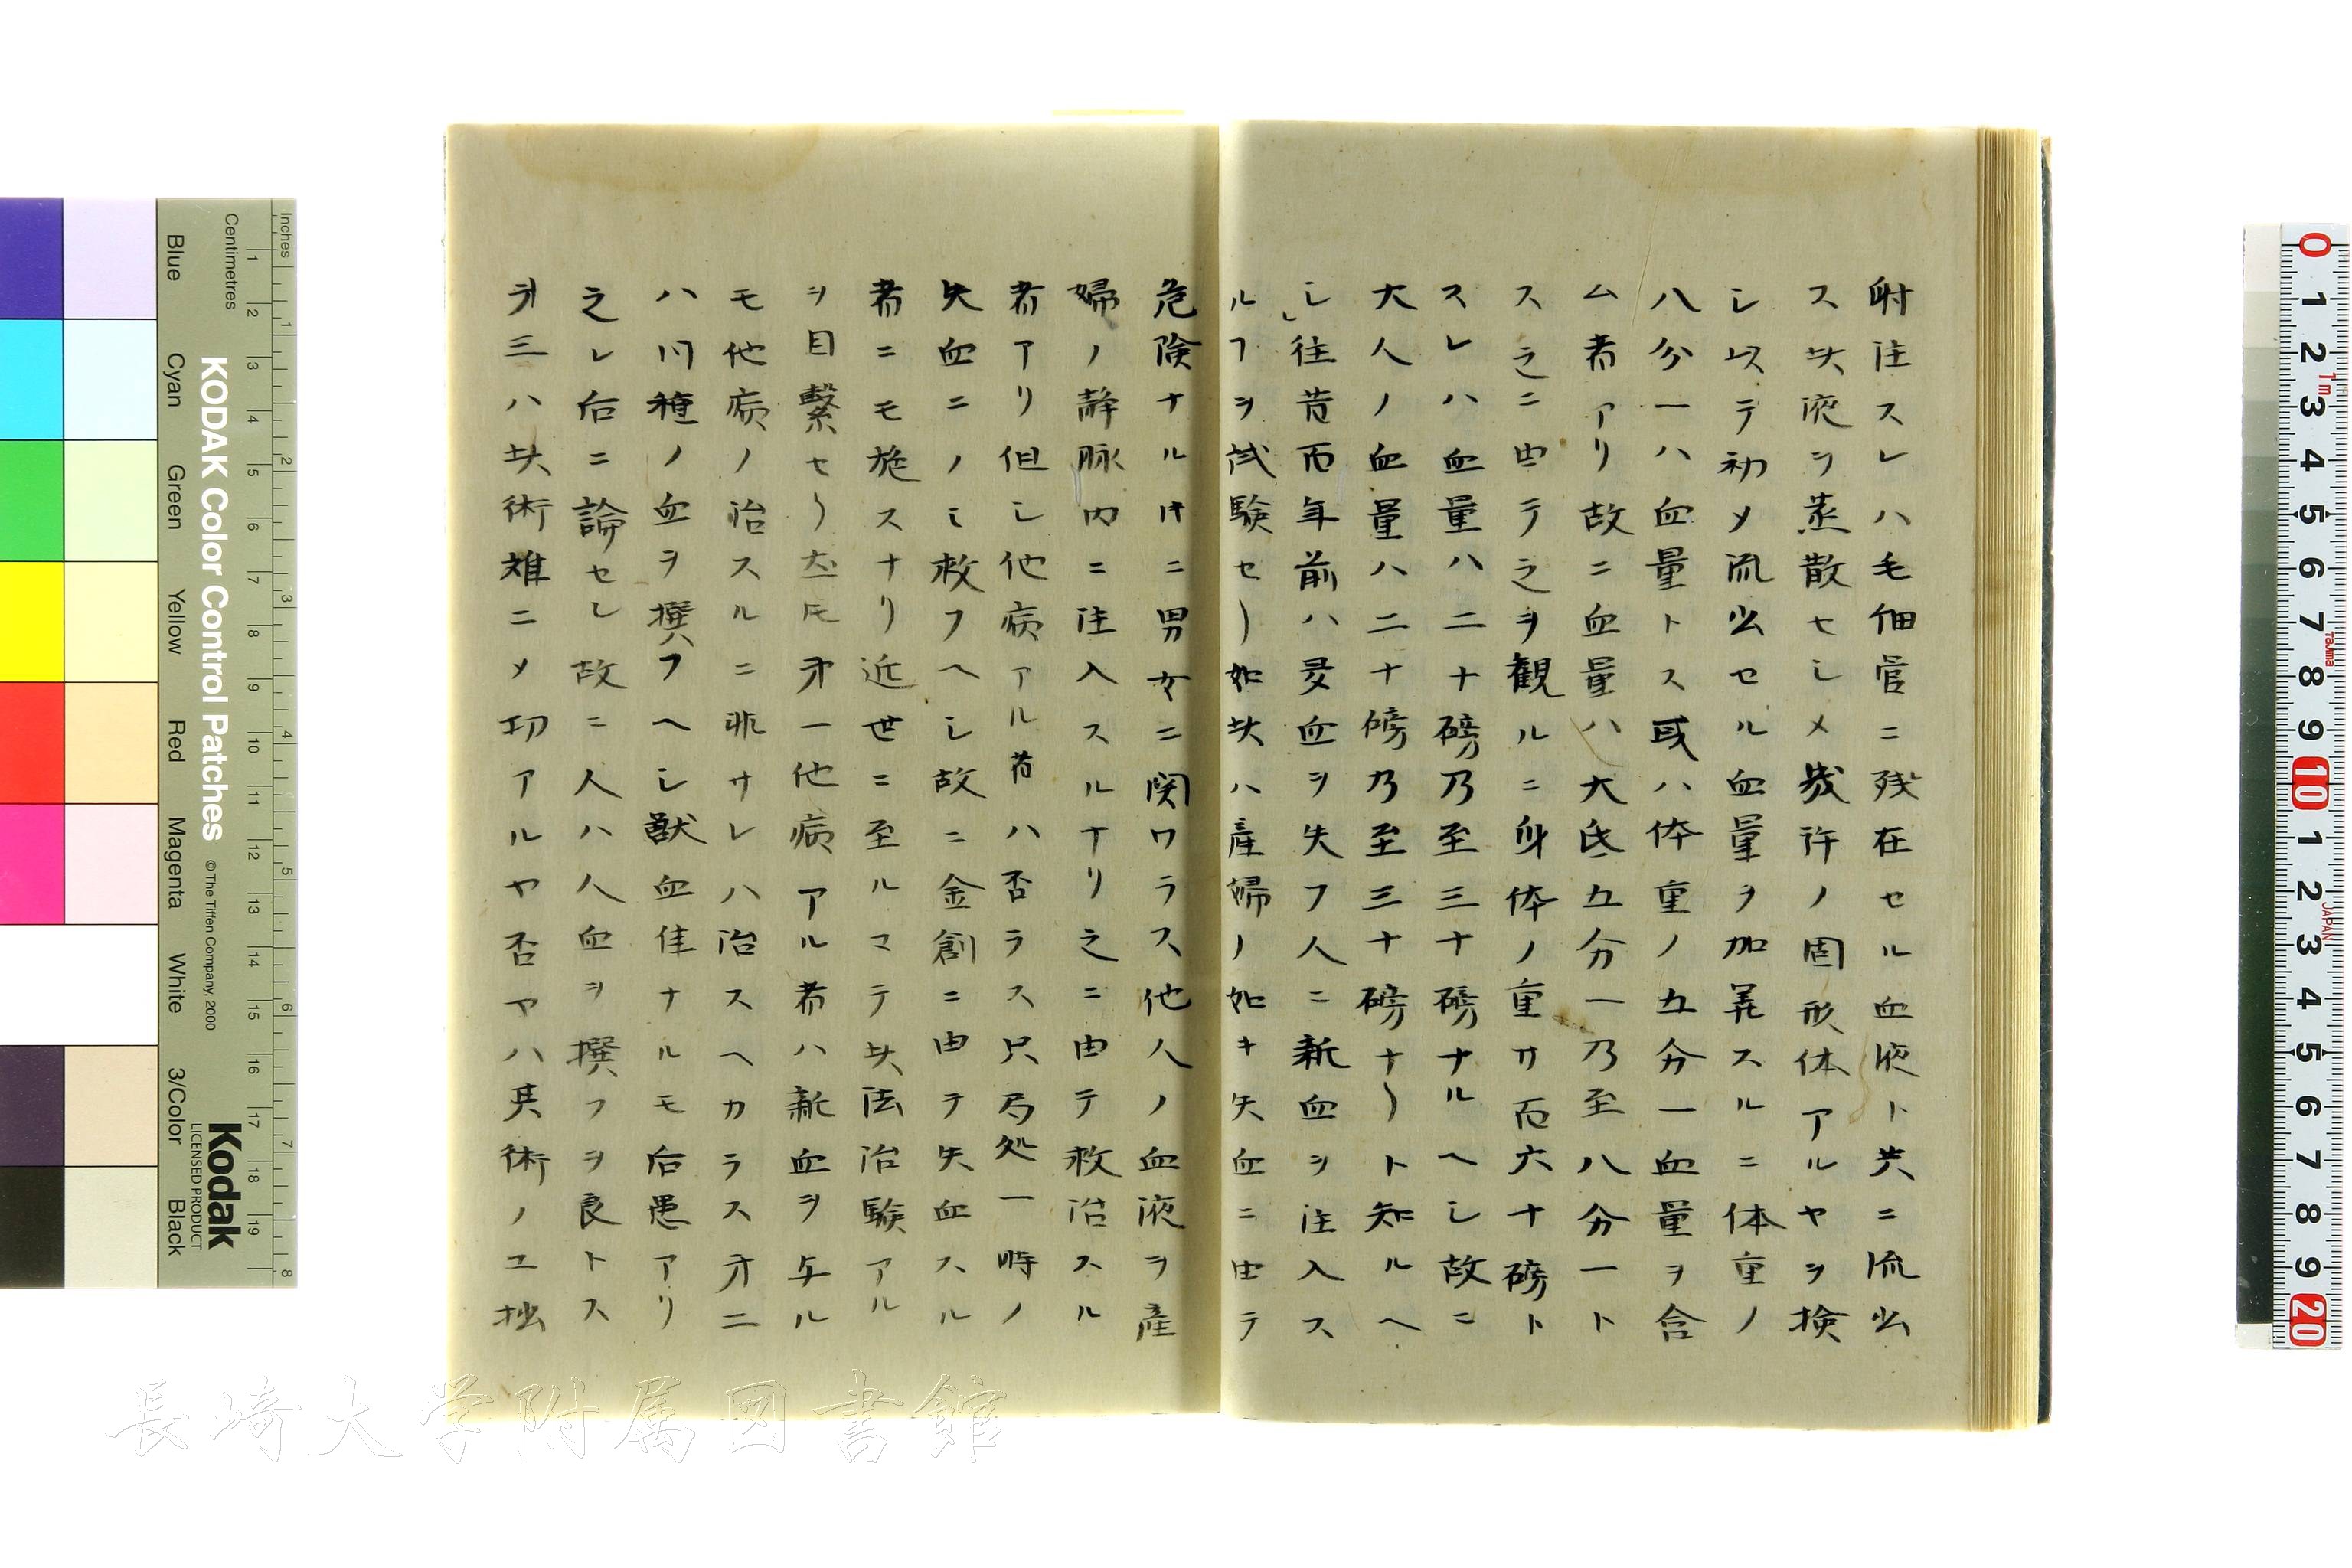 射注スレハ毛細管ニ残在セル血液ト共ニ流出
ス此液ヲ蒸散セシメ幾許ノ固形体アルヤヲ検
シ以テ初メ流出セル血量ヲ加算スルニ体重ノ
八分一ハ血量トス或ハ体重ノ五分一血量ヲ含
ム者アリ故ニ血量ハ大氐五分一乃至八分一ト
ス之ニ由テ之ヲ観ルニ身体ノ重サ百六十磅ト
スレハ血量ハ二十磅乃至三十磅ナルヘシ故ニ
大人ノ血量ハ二十磅乃至三十磅ナ〳ト知ルヘ
シ往昔百年前ハ夛血ヲ失フ人ニ新血ヲ注入ス
ルヿヲ試験セ〳如此ハ産婦ノ如キ失血ニ由テ
危険ナルキニ男女ニ関ワラス他人ノ血液ヲ産
婦ノ静脉内ニ注入スルナリ之ニ由テ救治スル
者アリ但シ他病アル者ハ否ラス只局処一時ノ
失血ニノミ救フヘシ故ニ金創ニ由テ失血スル
者ニモ施スナリ近世ニ至ルマテ此法治験アル
ヲ目繋セ〳然𪜈第一他病アル者ハ新血ヲ与ル
モ他病ノ治スルニ非サレハ治スヘカラス第二
ハ同種ノ血ヲ撰フヘシ獣血佳ナルモ后患アリ
之レ后ニ論セシ故ニ人ハ人血ヲ撰フヲ良トス
第三ハ此術難ニメ功アルヤ否ヤハ其術ノ工拙
Inches
Centimetres
KODAK Color Control Patches
© The Tiffen Company, 2000
Kodak
LICENSED PRODUCT
Blue
Cyan
Green
Yellow
Red
Magenta
White
3/Color
Black
1 2 3 4 5 6 7 8 9 10 11 12 13 14 15 16 17 18 19
1 2 3 4 5 6 7 8
0 1 2 3 4 5 6 7 8 9 10 1 2 3 4 5 6 7 8 9 20
1m
Tajima
JAPAN
長崎大学附属図書館